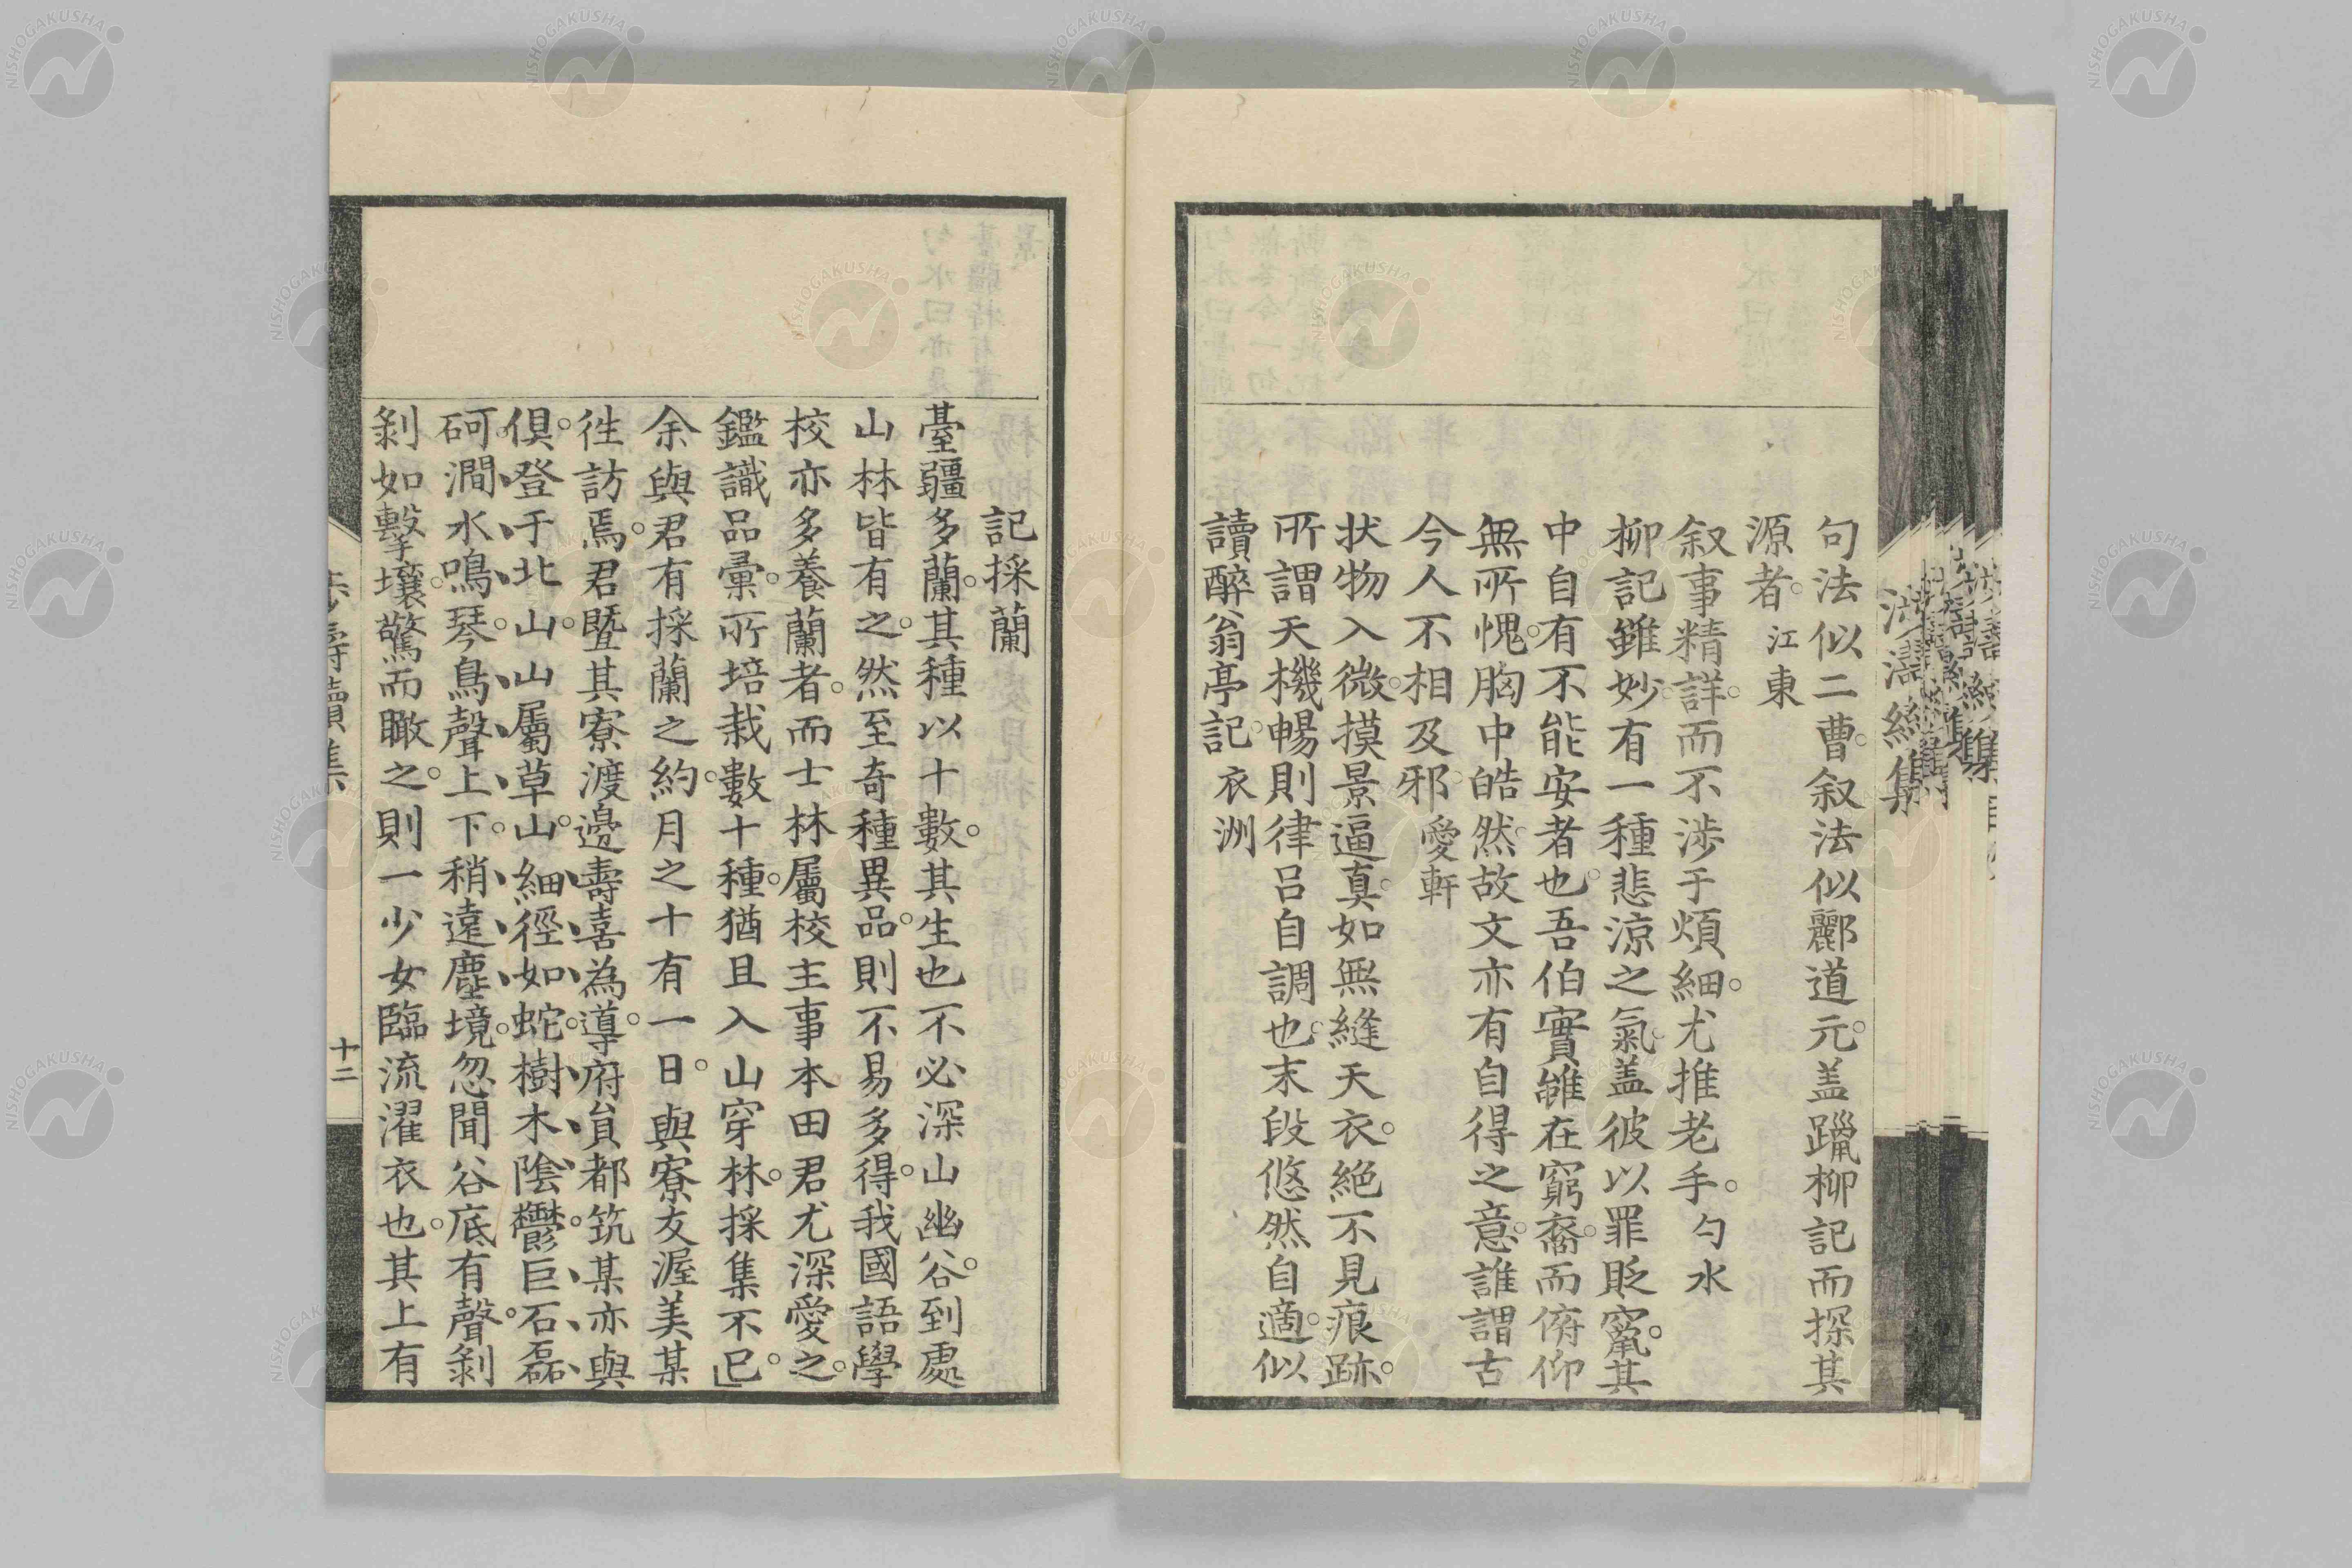 句法似二曹。叙法似酈道元。盖躐柳記而探其
源者。江東
叙事精詳。而不渉于煩細。尤推老手。勺水
柳記雖妙。有一種悲涼之氣。盖彼以罪貶竄。其
中自有不能安者也。吾伯實雖在窮裔。而俯仰
無所愧。胸中皓然。故文亦有自得之意。誰謂古
今人不相及邪。愛軒
状物入微。摸景逼真。如無縫天衣。絶不見痕跡。
所謂天機暢則律呂自調也。末段悠然自適。似
讀醉翁亭記。衣洲
記採蘭
臺疆多蘭。其種以十數。其生也不必深山幽谷。到處
山林皆有之。然至奇種異品。則不易多得。我國語學
校亦多養蘭者。而士林屬校主事本田君尤深愛之。
鑑識品彙。所培栽數十種。猶且入山穿林。採集不已。
余與君有採蘭之約。月之十有一日。與寮友渥美某
徃訪焉。君曁其寮渡邊壽喜為導。府貟都筑某亦與
俱。登于北山。山屬草山。細徑如蛇。樹木陰鬱。巨石磊
砢。澗水鳴琴。鳥聲上下。稍遠塵境。忽聞谷底有聲。剝
剝如擊壤。驚而瞰之。則一少女臨流濯衣也。其上有
十二
NISHOGAKUSHA